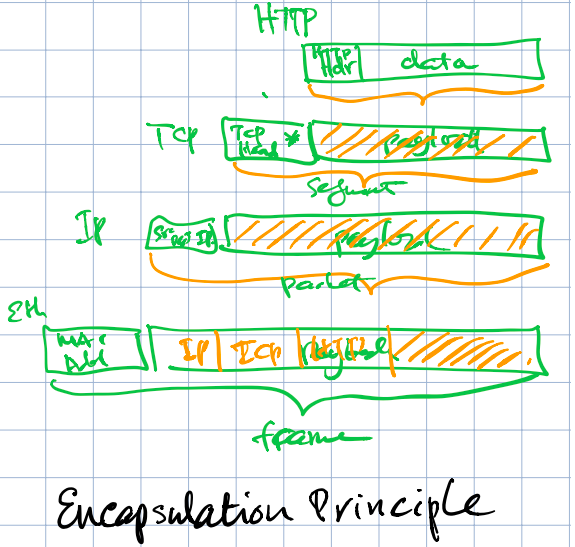 HTTP
HTTP Hdr data
TCP TCP Head * payload
segment
IP Src Dst IP payload
packet
Eth MAC Add IP TCP
frame
Encapsulation Principle